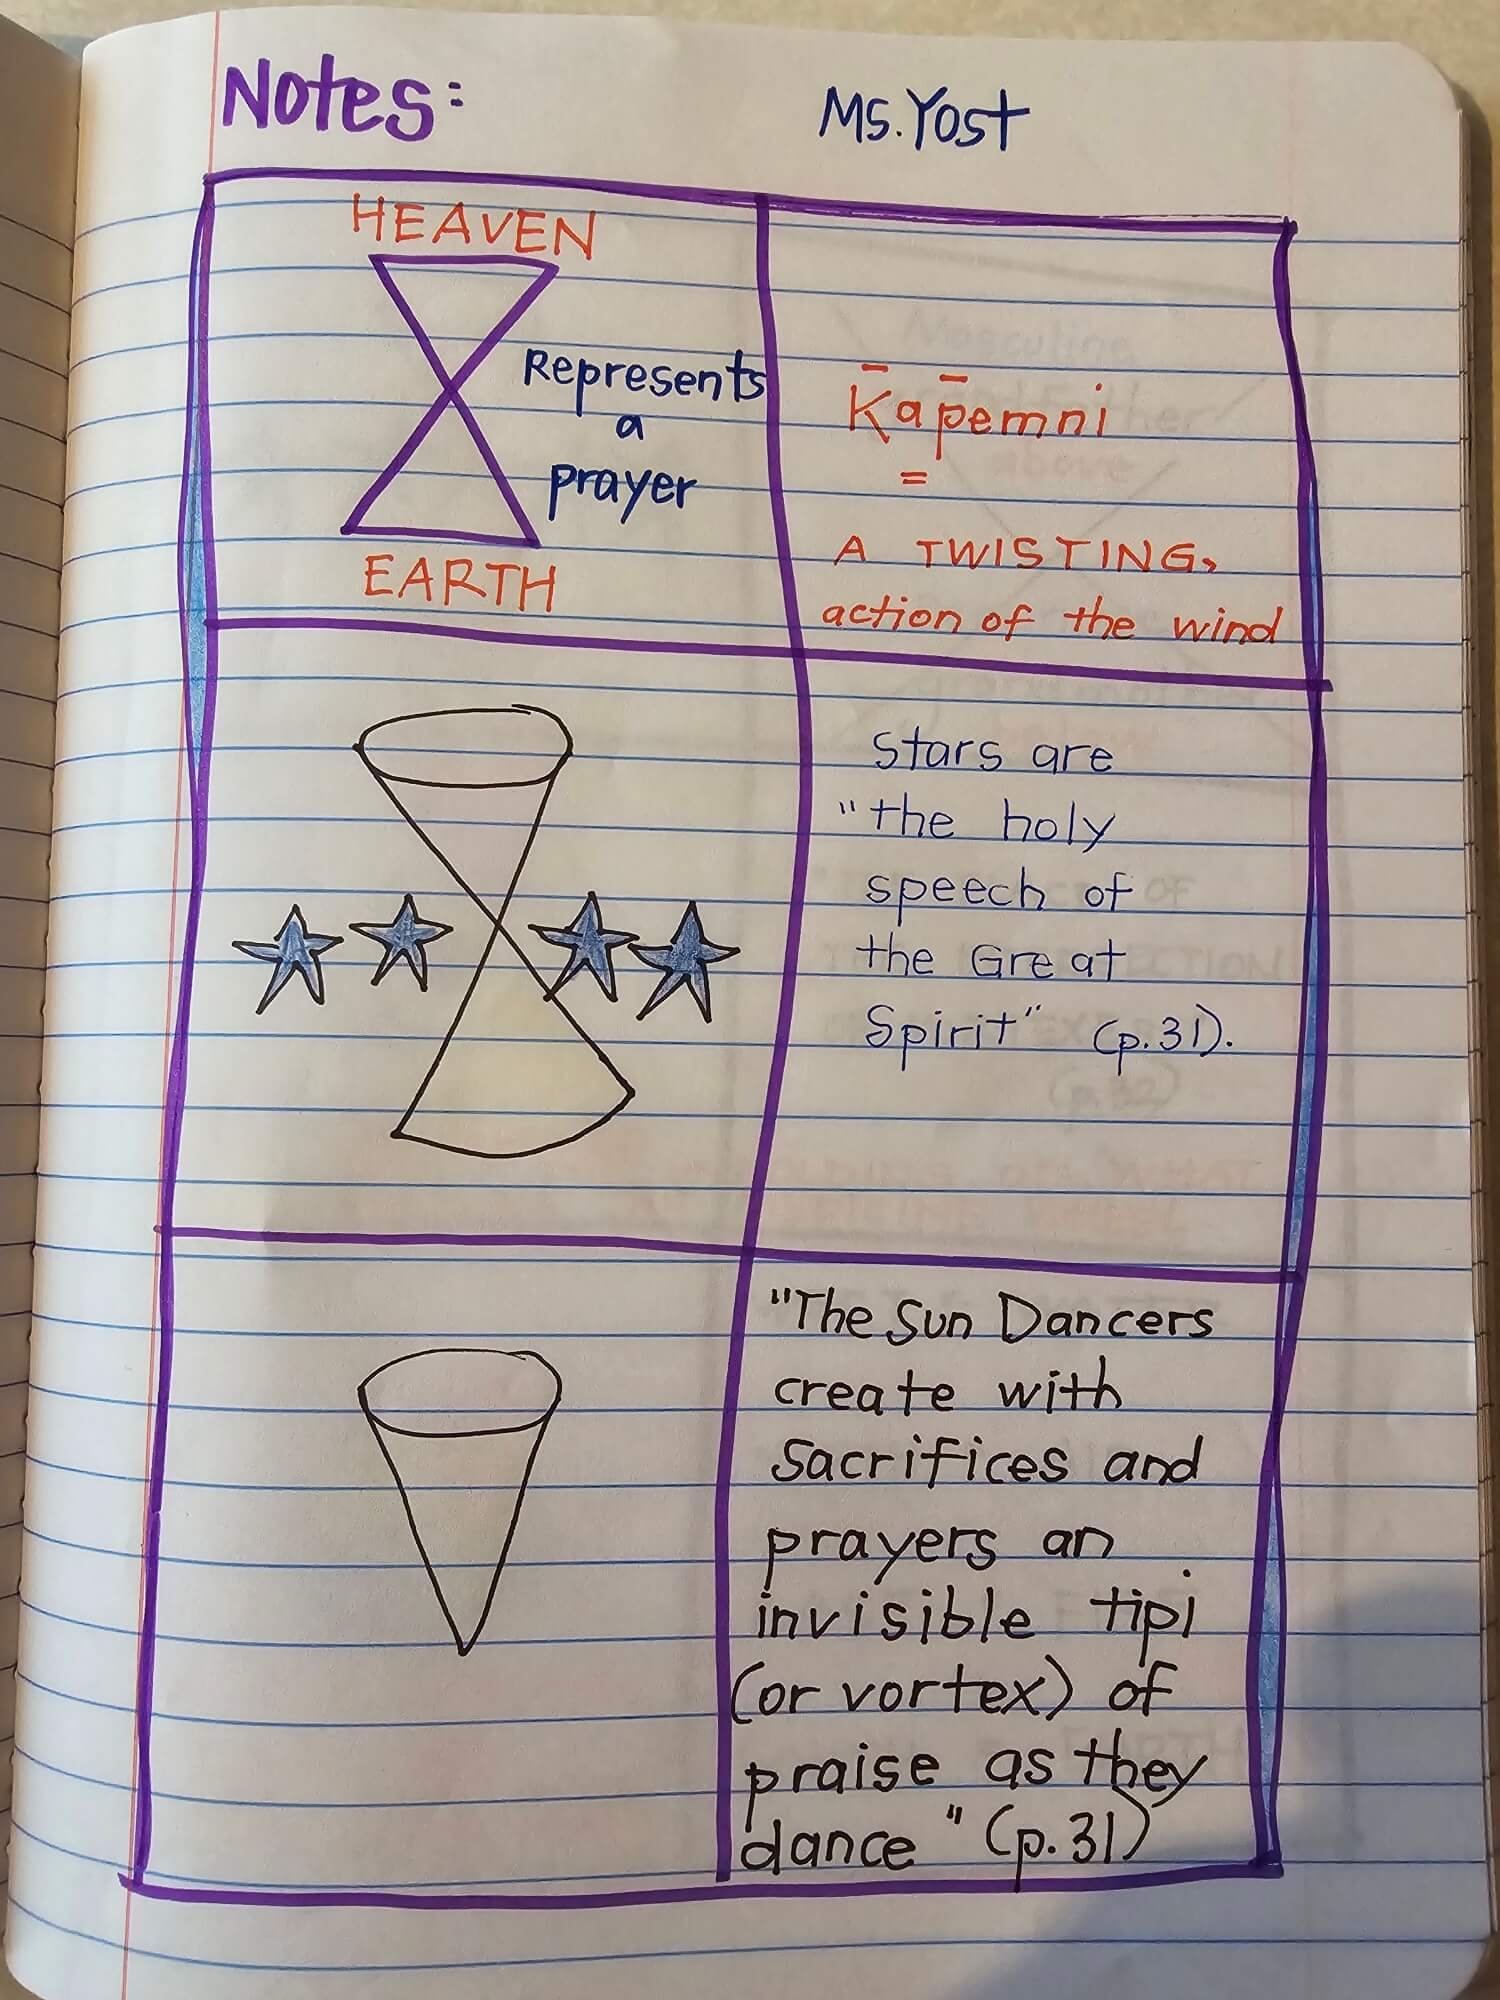 Notes:
Ms. Yost
HEAVEN
Represents
a
prayer
EARTH
K̄ap̄emni
=
A TWISTING,
action of the wind
Stars are
"the holy
speech of
the Great
Spirit" (p.31).
"The Sun Dancers
create with
sacrifices and
prayers an
invisible tipi
(or vortex) of
praise as they
dance" (p.31)